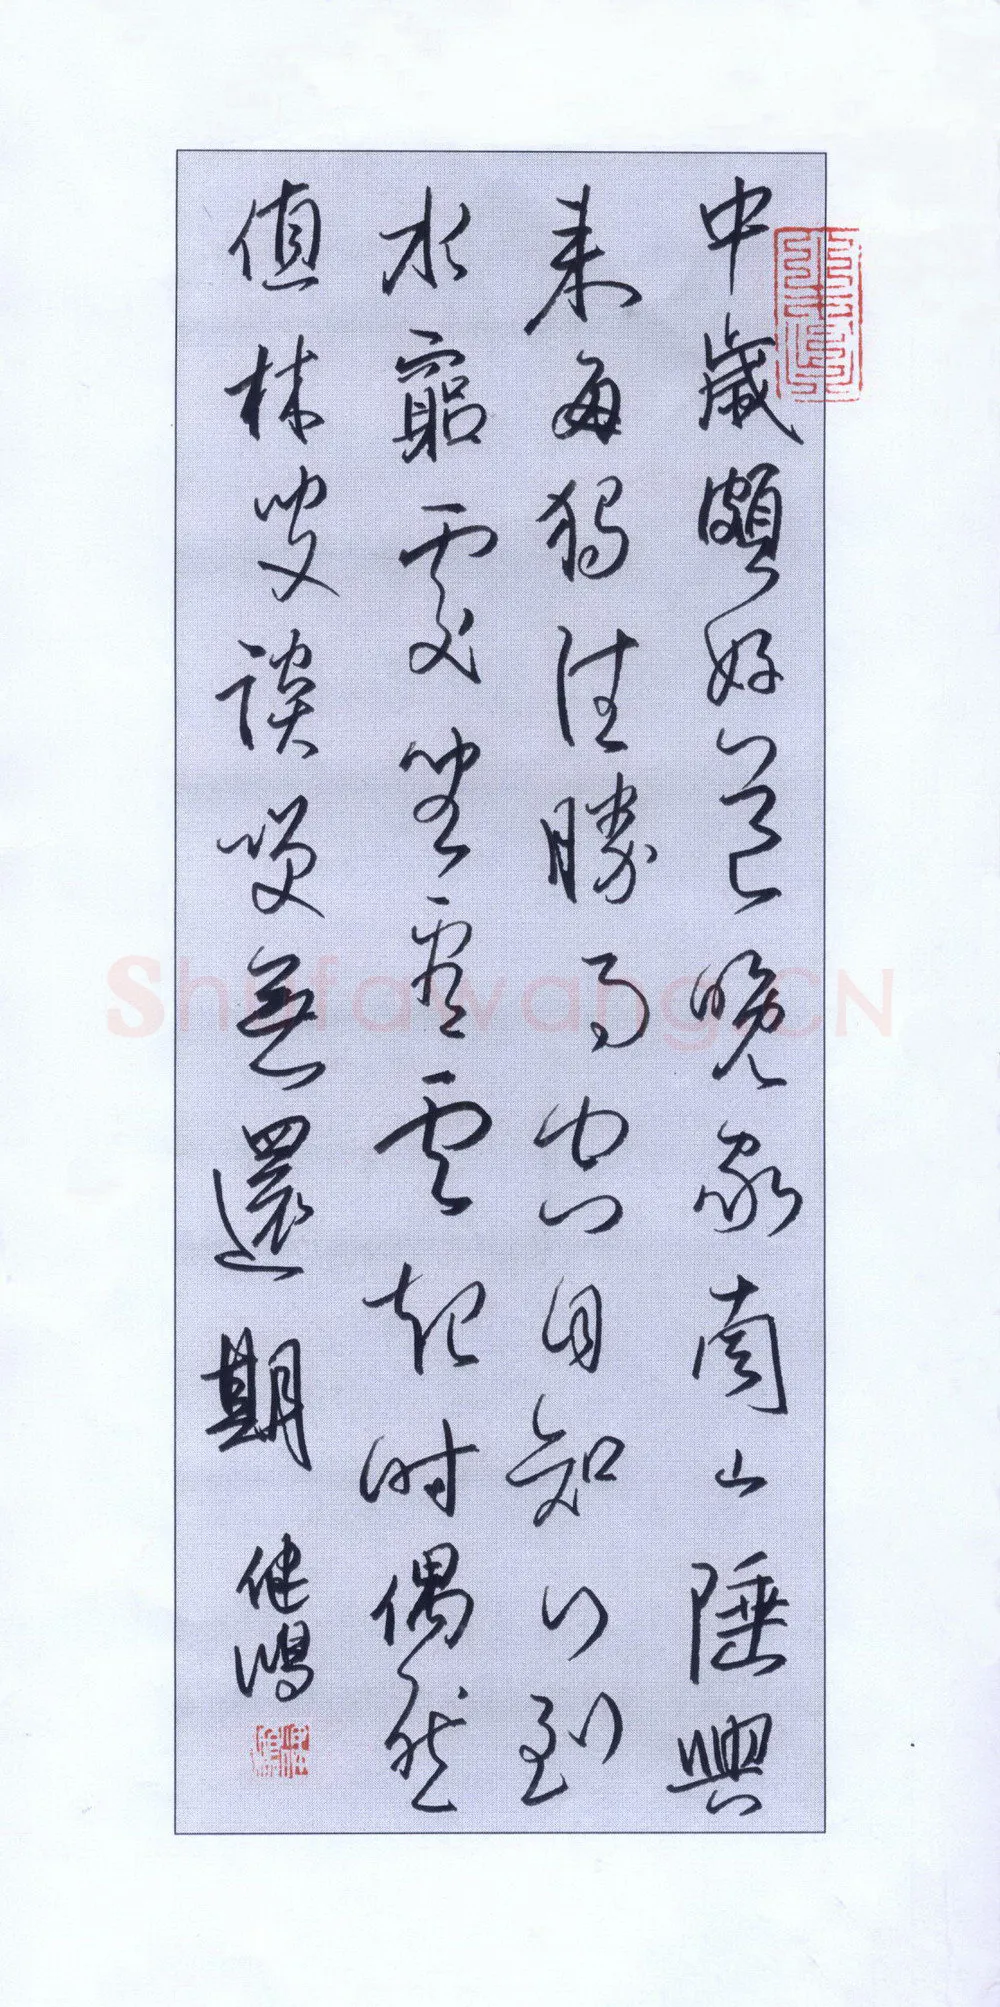 中歲頗好道晚家南山陲興
来每獨往勝事空自知行到
水窮處坐看雲起時偶然
值林叟談笑無還期
健鴻
Shufawang.CN